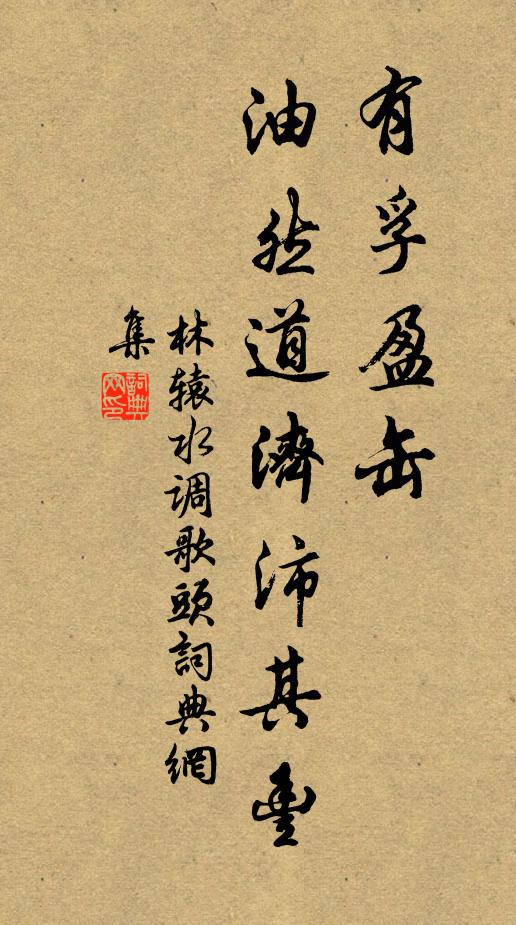 有孚盈缶
油然道濟沛其豐
林辕水调歌頭詞典網
集
詞典網印